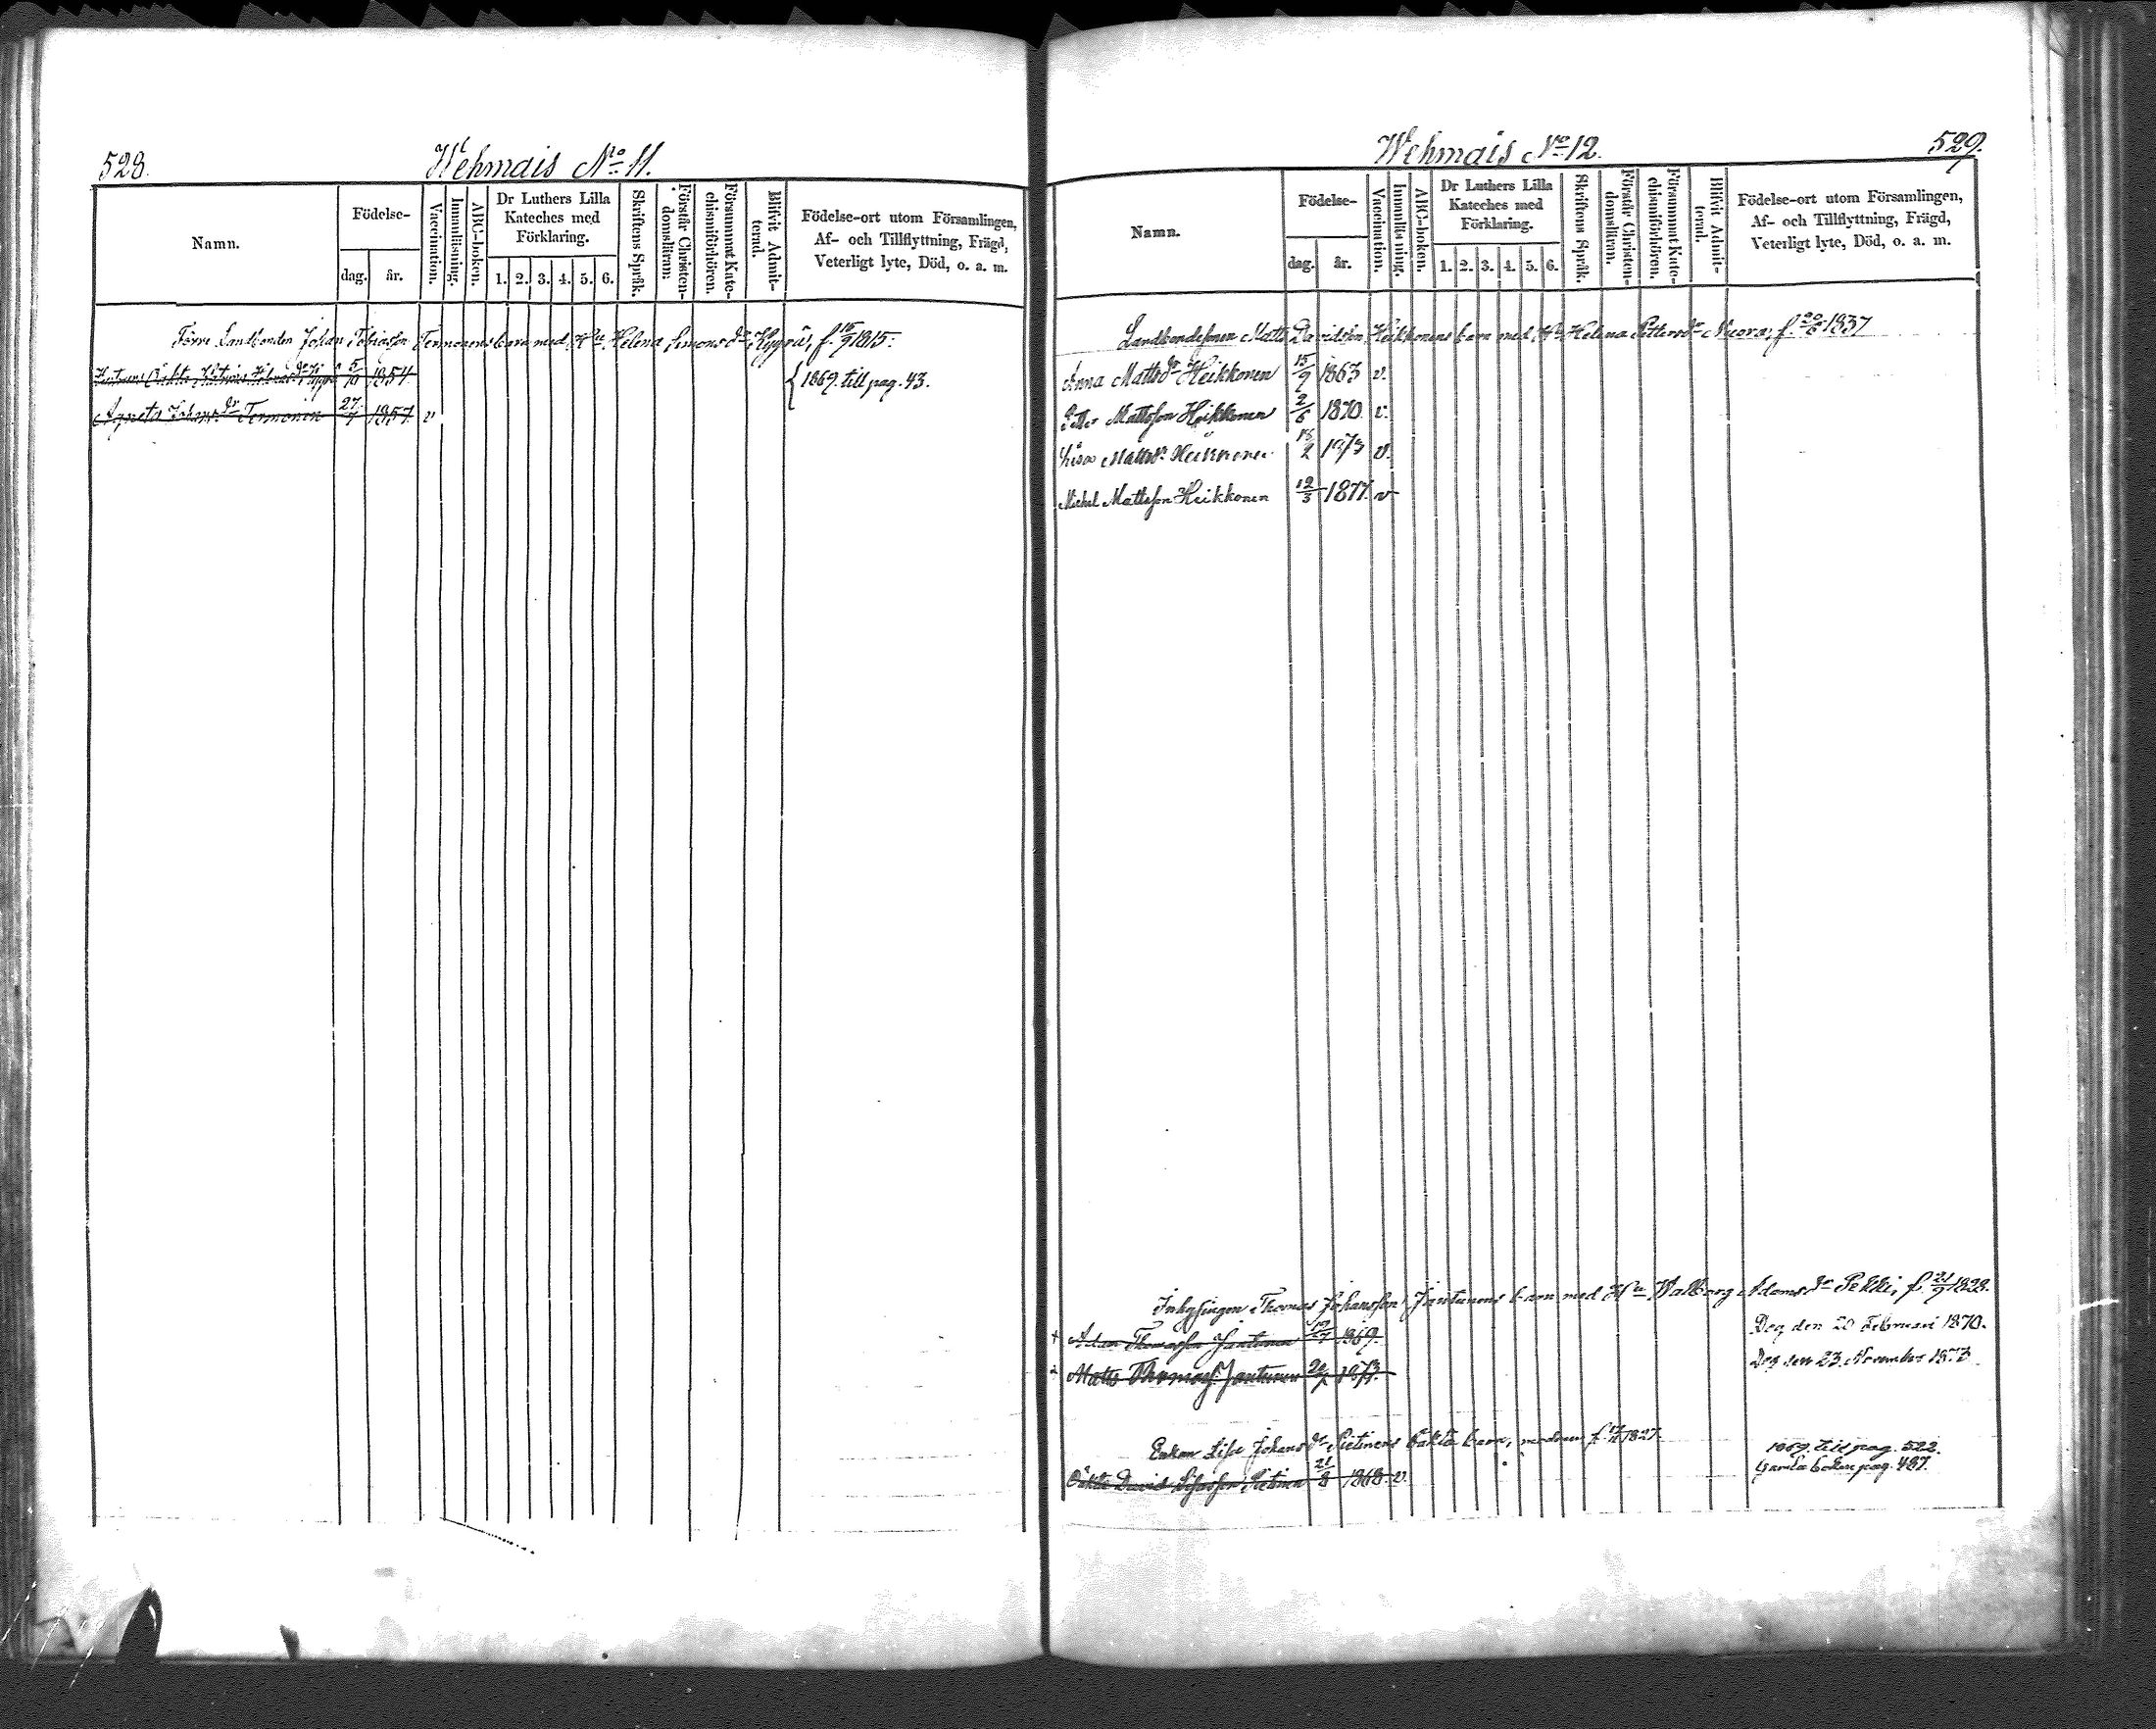 528.
Wehmais No 11.
Namn.
Födelse-
dag.
år.
Vaccination.
Innanläsning.
ABC-boken.
Dr Luthers Lilla
Kateches med
Förklaring.
1. 2. 3. 4. 5. 6.
Skriftens Språk.
Förstår Christen-
domsläran.
Försummat Kate-
chismiförhören.
Blifvit Admit-
terad.
Födelse-ort utom Församlingen,
Af- och Tillflyttning, Frägd,
Veterligt lyte, Död, o. a. m.
Förre Landbonden Johan Tobiasson Termonens barn med Hu Helena Simonsdr Hyyrä, f. 15/9 1815.
5/10 1854
1869. till pag. 43.
Agneta Johansdr Termonen 27/7 1857. v
529.
Wehmais No 12.
Namn.
Födelse-
dag.
år.
Vaccination.
Innanläsning.
ABC-boken.
Dr Luthers Lilla
Kateches med
Förklaring.
1. 2. 3. 4. 5. 6.
Skriftens Språk.
Förstår Christen-
domsläran.
Försummat Kate-
chismiförhören.
Blifvit Admit-
terad.
Födelse-ort utom Församlingen,
Af- och Tillflyttning, Frägd,
Veterligt lyte, Död, o. a. m.
Landbondesonen Matts Davidsson Heikkonens barn med Hu Helena Pettersdr Nuora, f. 20/6 1837
Anna Mattsdr Heikkonen 15/9 1863 v.
Petter Mattsson Heikkonen 2/6 1870. v.
Lisa Mattsdr Heikkonen 18/2 1873 v.
Michel Mattsson Heikkonen 12/3 1877. v
Inhysingen Thomas Johansson Jantunens barn med Hu Walborg Adamsdr Pekki, f. 21/9 1828.
+ Adam Thomasson Jantunen 19/7 1869. Dog den 20 Februari 1870.
+ Matts Thomass. Jantunen 1873. Dog den 23 November 1873.
Enkan Lisa Johansdr Pietinens oäkta barn, modren f. 1827.
1869. till pag. 522.
Oäkta David Lisasson Pietinen 21/8 1868. v. Gamla boken pag. 487.